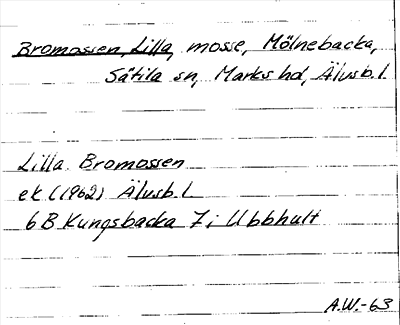 Bromossen, Lilla, mosse, Mölnebacka,
Sätila sn, Marks hd, Älvsb. l.
Lilla Bromossen
ek (1962) Älvsb. l
6B Kungsbacka 7i Ubbhult
A.W.-63